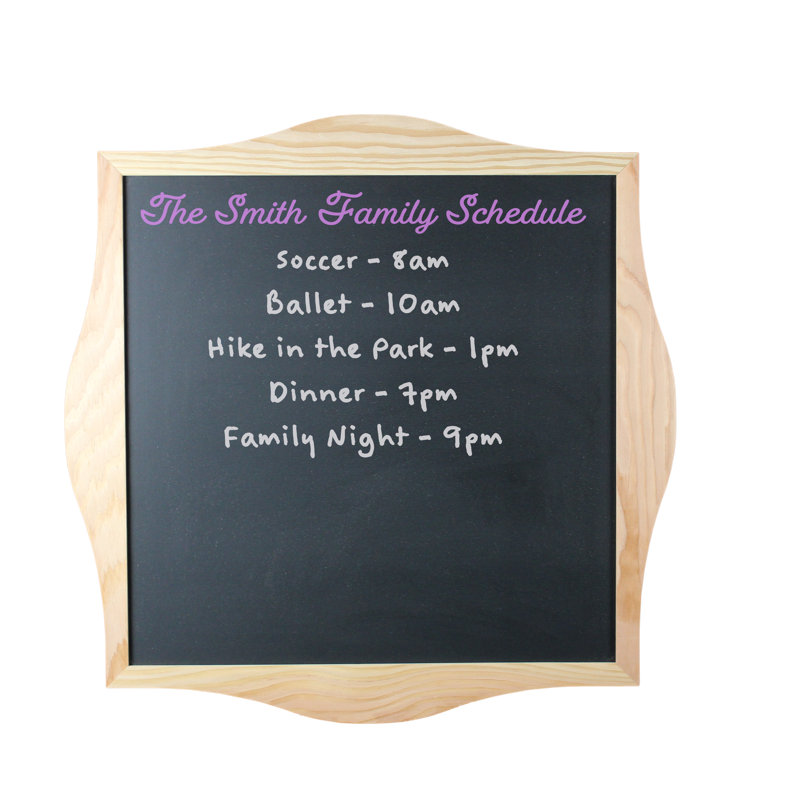 The Smith Family Schedule
Soccer - 8am
Ballet - 10am
Hike in the Park - 1pm
Dinner - 7pm
Family Night - 9pm